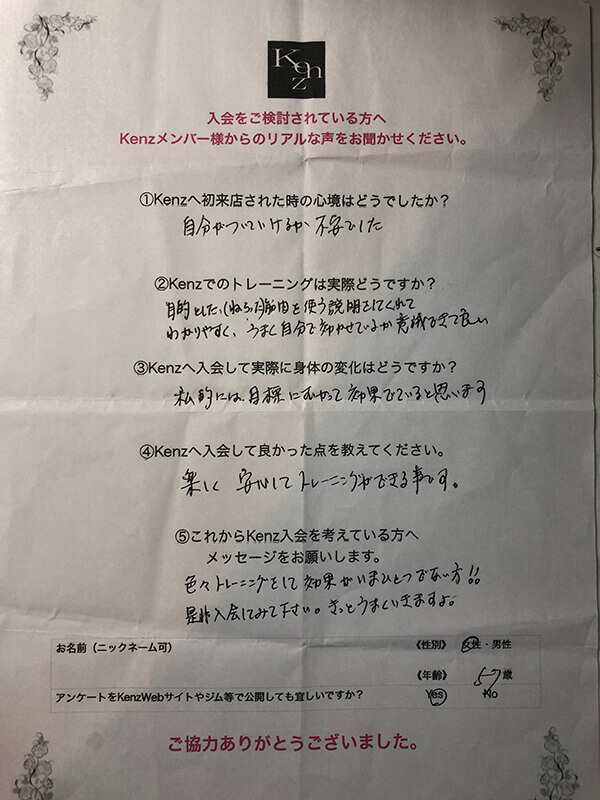 Kenz
入会をご検討されている方へ
Kenzメンバー様からのリアルな声をお聞かせください。
①Kenzへ初来店された時の心境はどうでしたか？
自分がついていけるか 不安でした
②Kenzでのトレーニングは実際どうですか？
目的とした、(ねらった)筋肉を使う説明をしてくれて
わかりやすく、うまく自分で効かせているか意識できて良い
③Kenzへ入会して実際に身体の変化はどうですか？
私的には、目標にむかって効果でていると思います
④Kenzへ入会して良かった点を教えてください。
楽しく 安心してトレーニングができる事です。
⑤これからKenz入会を考えている方へ
メッセージをお願いします。
色々トレーニングをして効果がいまひとつでない方!!
是非入会してみて下さい。きっとうまくいきますよ。
お名前（ニックネーム可） 《性別》 女性・男性
《年齢》 57歳
アンケートをKenzWebサイトやジム等で公開しても宜しいですか？ Yes No
ご協力ありがとうございました。